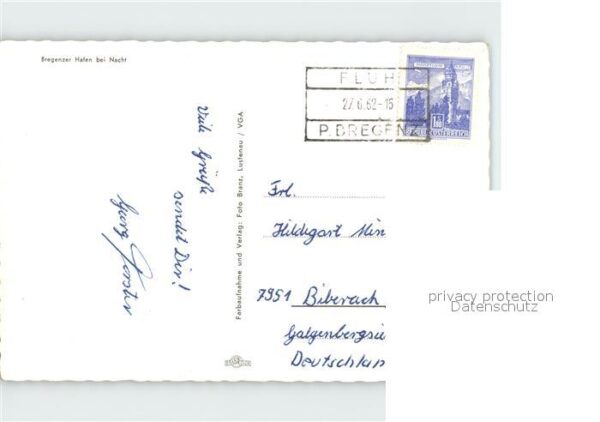 Bregenzer Hafen bei Nacht
FLUH
27.6.62-15
P. BREGENZ
ÖSTERREICH
Viele Grüße
sendet Dir!
Georg Forster
Farbaufnahme und Verlag: Foto Branz, Lustenau / VGA
Frl.
Hildegart Min
7951 Biberach
Galgenbergsie
Deutschlan
privacy protection
Datenschutz